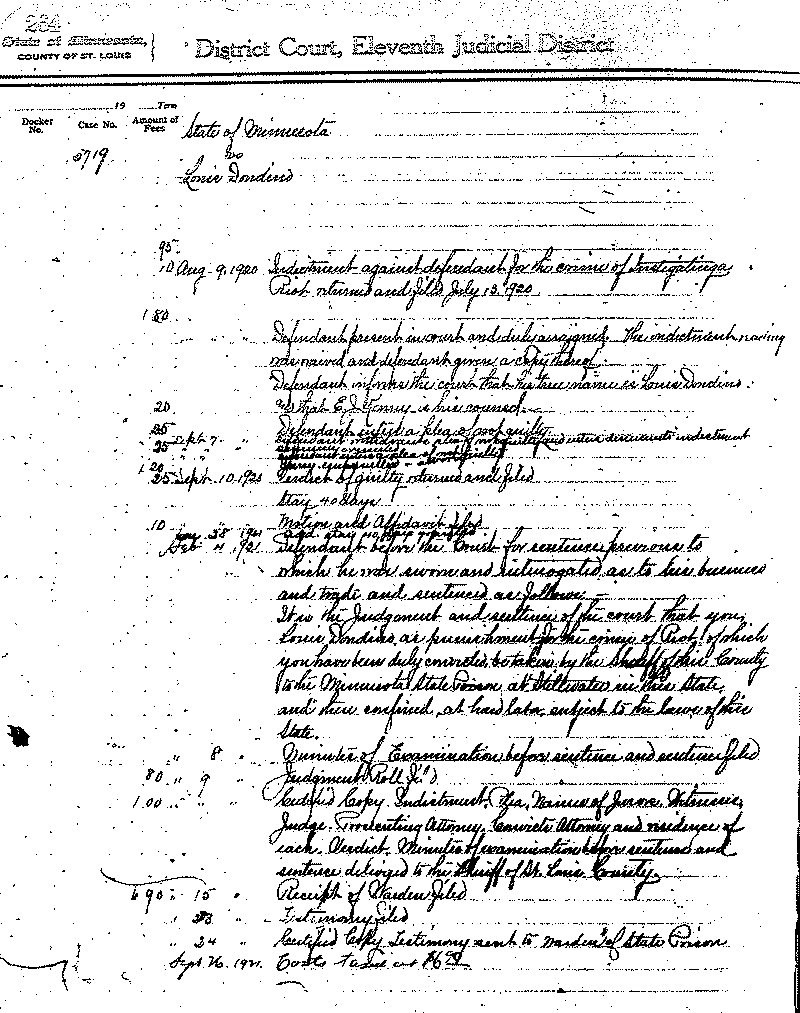 284
State of Minnesota,
COUNTY OF ST. LOUIS
District Court, Eleventh Judicial District
19 Term
Docket No. Case No. Amount of Fees
State of Minnesota
5719 vs
Louis Dondino
95
10 Aug. 9, 1920 Indictment against defendant for the crime of Instigating a
Riot returned and filed July 13, 1920
1 80
" " " Defendant present in court and duly arraigned. The indictment
was waived and defendant given a copy thereof.
Defendant informs the court that his true name is Louis Dondino.
20 " " " that E. J. Kenny is his counsel.
25 Defendant enters a plea of not guilty
" Sept. 7 " Defendant withdraws plea of not guilty and indictment
25
1 20
25 Sept. 10, 1920 Verdict of guilty returned and filed
Stay 40 days
10 Motion and Affidavit filed
Jany 28 1921 stay
Feb 4 1921 Defendant before the Court for sentence previous to
which he was sworn and interrogated as to his business
and trade and sentenced as follows:—
It is the Judgment and sentence of the court that you,
Louis Dondino, as punishment for the crime of Riot, of which
you have been duly convicted, be taken by the Sheriff of this County
to the Minnesota State Prison at Stillwater in this State,
and then confined, at hard labor, subject to the laws of this
State.
" 8 " Minutes of Examination before sentence and sentence filed
80 " 9 " Judgment Roll
1.00 " " " Certified Copy, Indictment, Plea, Names of Jurors, Witnesses,
Judge, Prosecuting Attorney, Convicts Attorney and residence of
each, Verdict, Minutes of examination before sentence and
sentence delivered to the Sheriff of St. Louis County.
6 90 " 15 " Receipt of Warden filed
" 23 " Testimony filed
" 24 " Certified Copy Testimony sent to Warden of State Prison
Sept 26, 1921. Costs taxed at